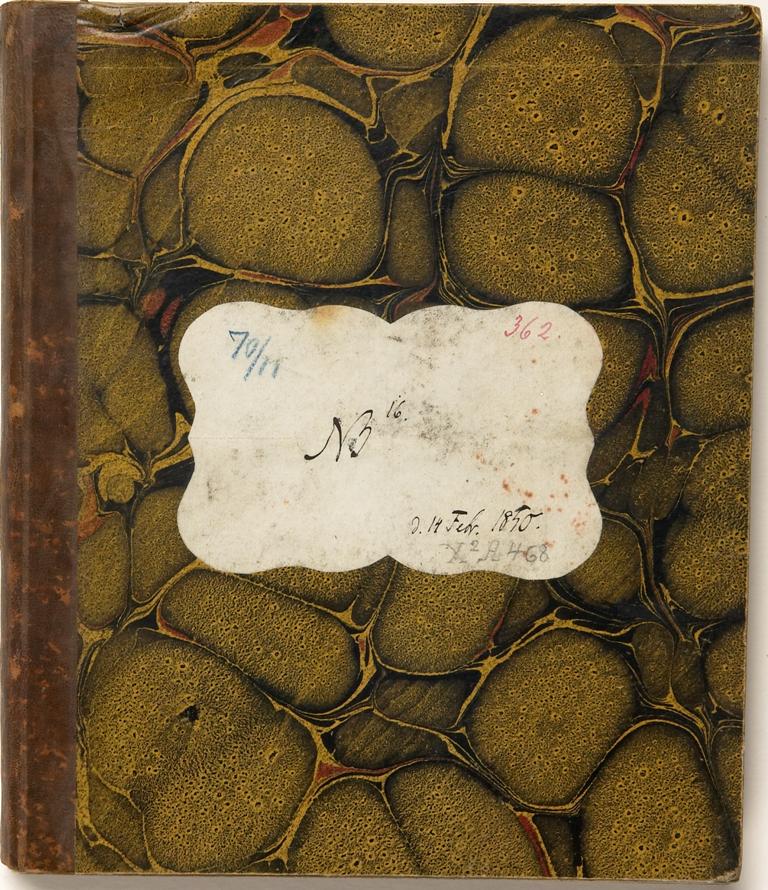 362.
NB 16.
d. 14 Febr. 1850.
X² A 468